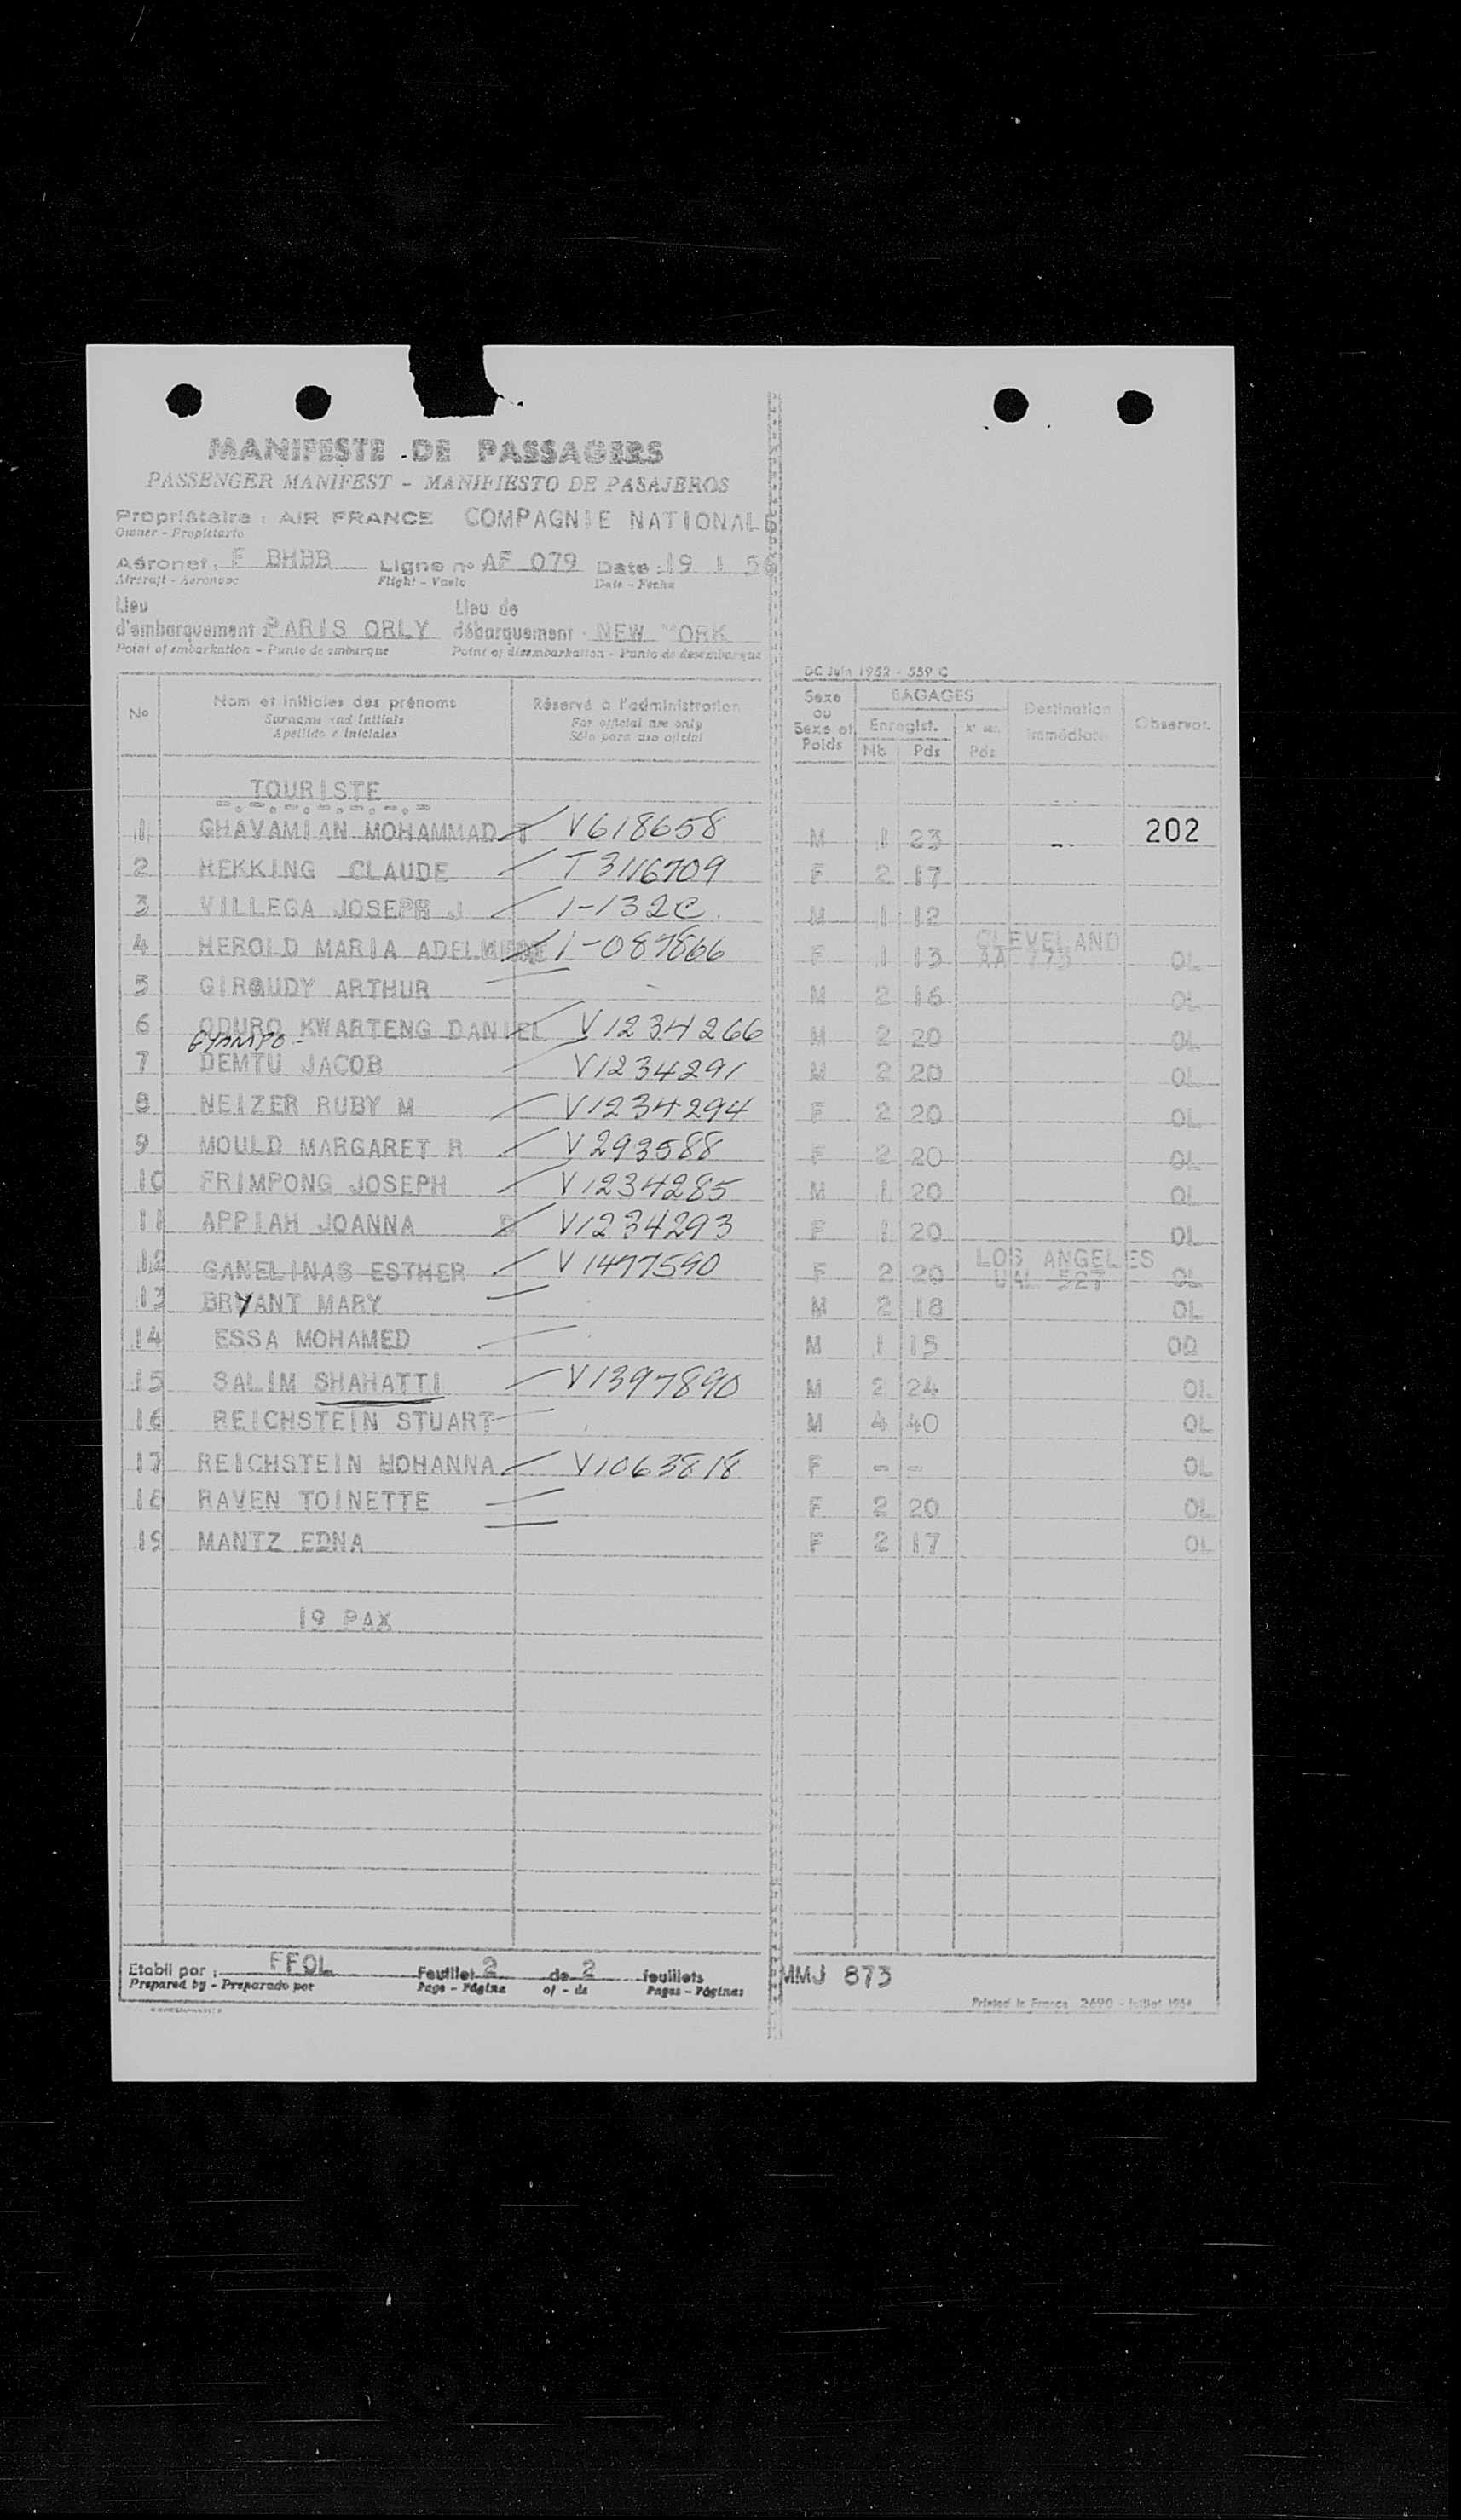 MANIFESTE DE PASSAGERS
PASSENGER MANIFEST - MANIFIESTO DE PASAJEROS
Propriétaire : AIR FRANCE COMPAGNIE NATIONALE
Owner - Propietario
Aéronef : F BHBB Ligne no AF 079 Date : 19 1 56
Aircraft - Aeronave Flight - Vuelo Date - Fecha
Lieu d'embarquement : PARIS ORLY Lieu de débarquement : NEW YORK
Point of embarkation - Punto de embarque Point of disembarkation - Punto de desembarque
DC Juin 1952 - 559 C
No Nom et initiales des prénoms Réservé à l'administration Sexe ou Sexe et Poids BAGAGES Destination immédiate Observat.
Surname and initials For official use only Enregist.
Apellido e iniciales Sólo para uso oficial Nb Pds Pds
TOURISTE
1 GHAVAMIAN MOHAMMAD T V618658 M 1 23 202
2 HEKKING CLAUDE T3116709 F 2 17
3 VILLEGA JOSEPH J 1-132C. M 1 12
4 HEROLD MARIA 1-087866 F 1 13 CLEVELAND AA 773 OL
5 GIRAUDY ARTHUR M 2 16 OL
6 ODURO KWARTENG DANIEL V1234266 M 2 20 OL
GYAMPO-
7 DEMTU JACOB V1234291 M 2 20 OL
8 NEIZER RUBY M V1234294 F 2 20 OL
9 MOULD MARGARET R V293588 F 2 20 OL
10 FRIMPONG JOSEPH V1234285 M 1 20 OL
11 APPIAH JOANNA V1234293 F 1 20 OL
12 GANELINAS ESTHER V1477590 F 2 20 LOS ANGELES UAL 527 OL
13 BRYANT MARY M 2 18 OL
14 ESSA MOHAMED M 1 15 OO
15 SALIM SHAHATTI V1397890 M 2 24 OL
16 REICHSTEIN STUART M 4 40 OL
17 REICHSTEIN YOHANNA V1063818 F - - OL
18 RAVEN TOINETTE F 2 20 OL
19 MANTZ EDNA F 2 17 OL
19 PAX
Etabli par : FFOL Feuillet 2 de 2 feuillets MMJ 873
Prepared by - Preparado por Page - Página of - de Pages - Páginas
Printed in France 2690 - Juillet 1954